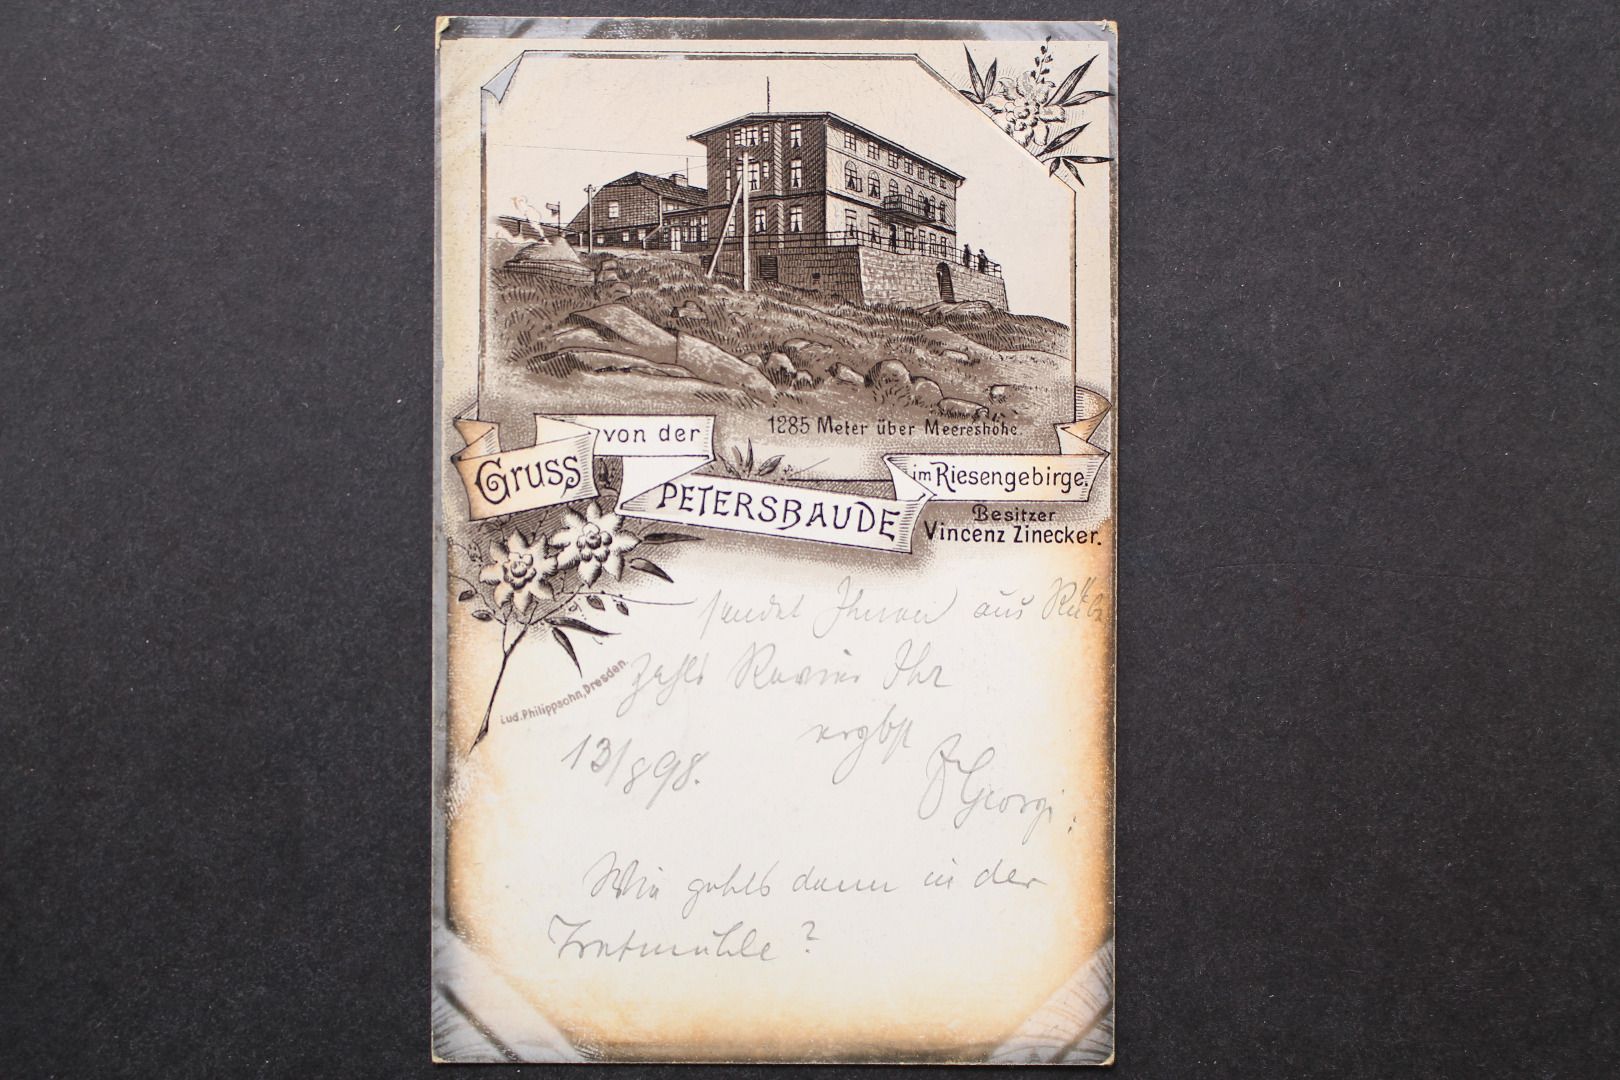 1285 Meter über Meereshöhe.
Gruss von der
PETERSBAUDE
im Riesengebirge.
Besitzer
Vincenz Zinecker.
sendet Ihnen aus Rübe
zahls Revier Ihr
ergbst
Lud. Philippsohn, Dresden.
13/8 98.
F Georgi.
Wie gehts denn in der
Tretmühle?